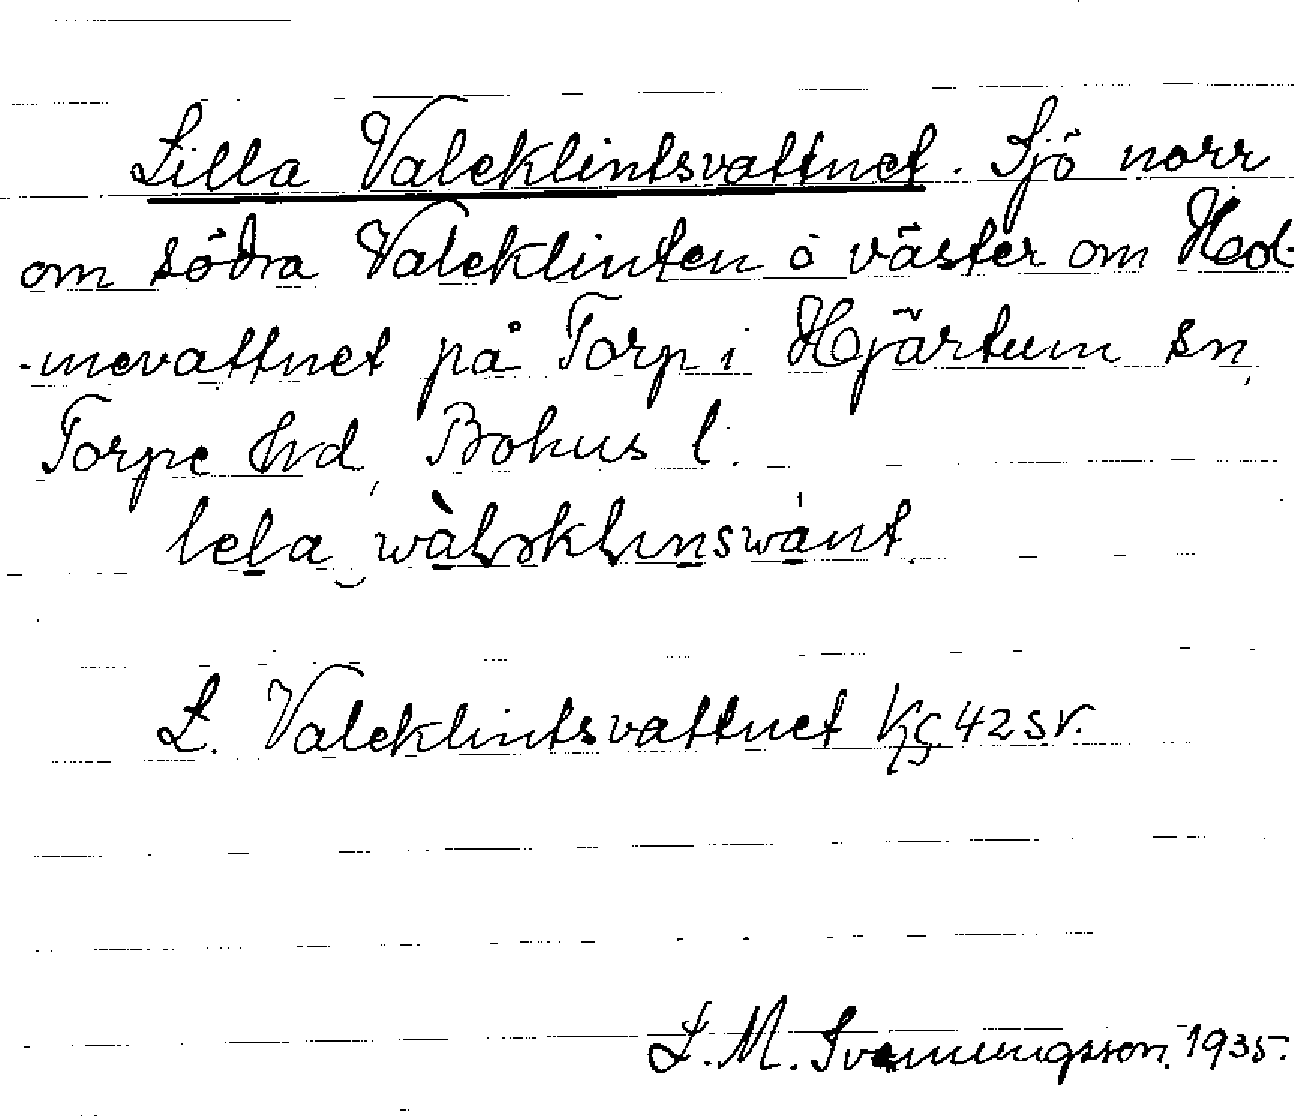 Lilla Valeklintsvattnet. Sjö norr
om södra Valeklinten o väster om Hed-
-mevattnet på Torp i Hjärtum sn,
Torpe hrd, Bohus l.
L. Valeklintsvattnet Kç 42 SV.
L. M. Svenningsson. 1935.